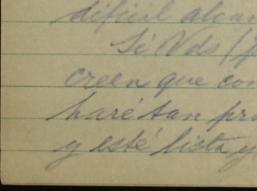 difícil alcan
Si Vds (p
creen que con
haré tan pro
y esté lista y